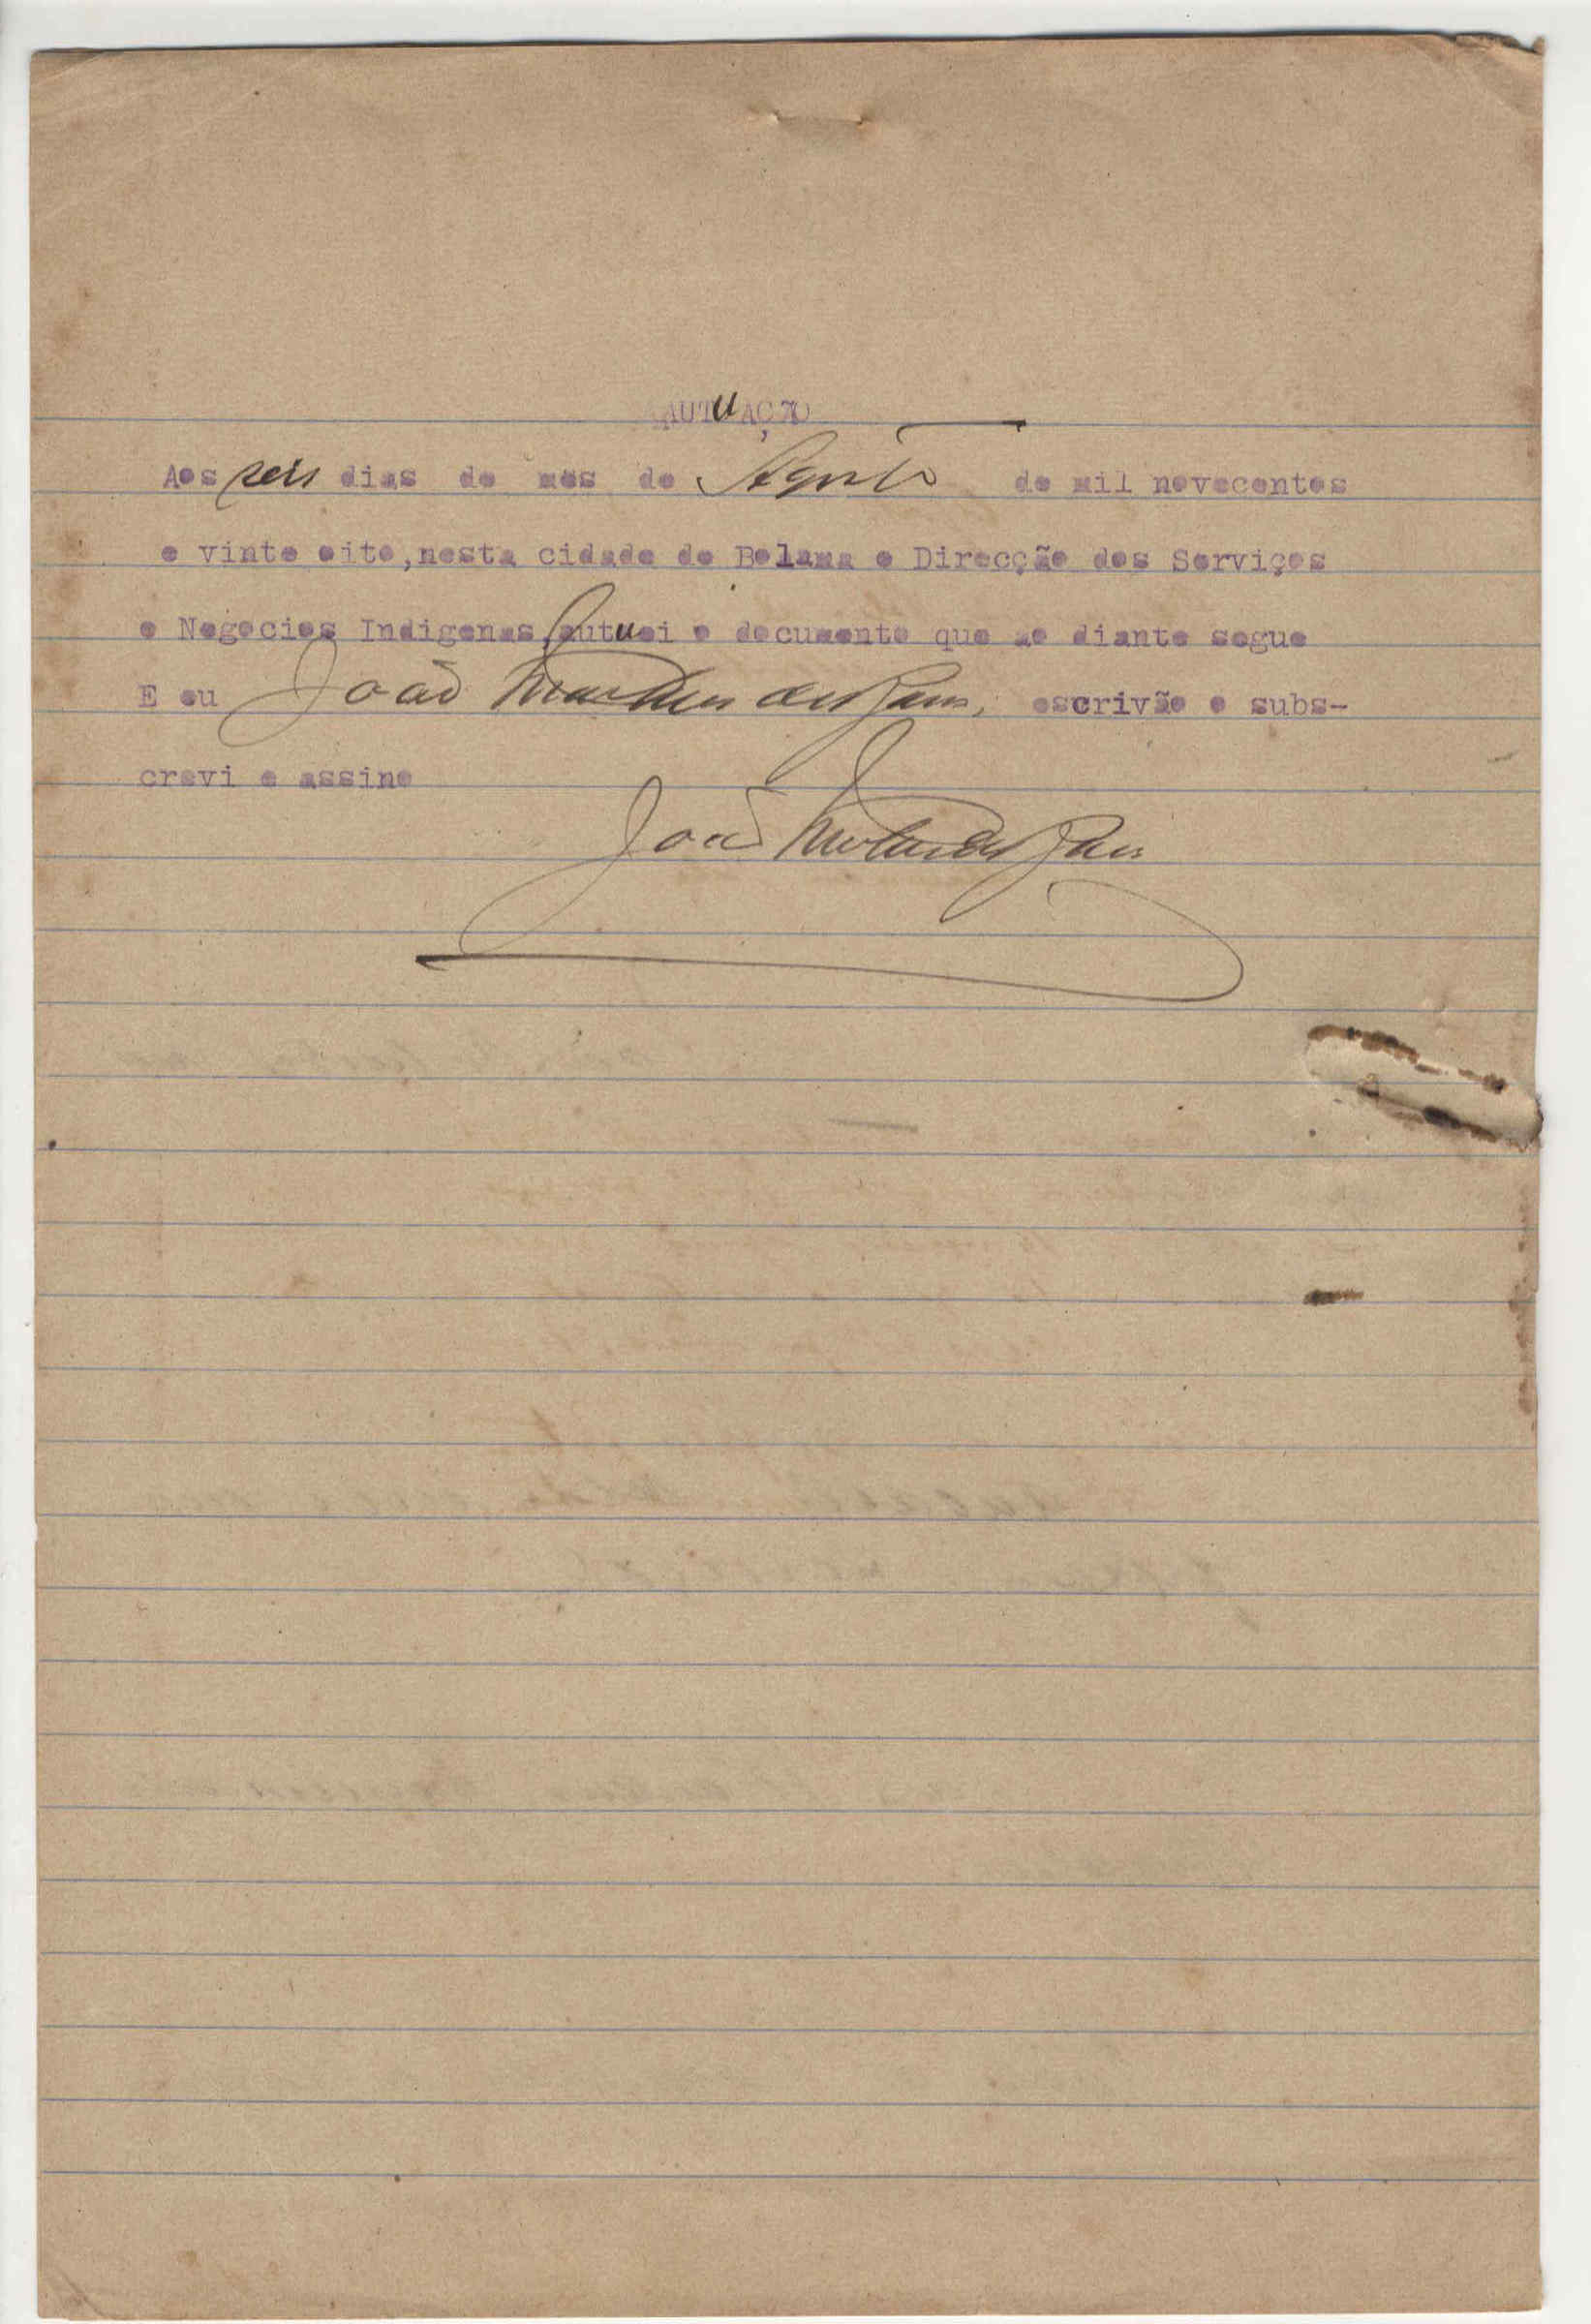 AUTUAÇÃO
Aos seis dias do mes de Agosto de mil novecentos
e vinte oito, nesta cidade de Bolama e Direcção dos Serviços
e Negocios Indigenas, autuei o documento que ao diante segue
E eu João escrivão o subs-
crevi e assino
João